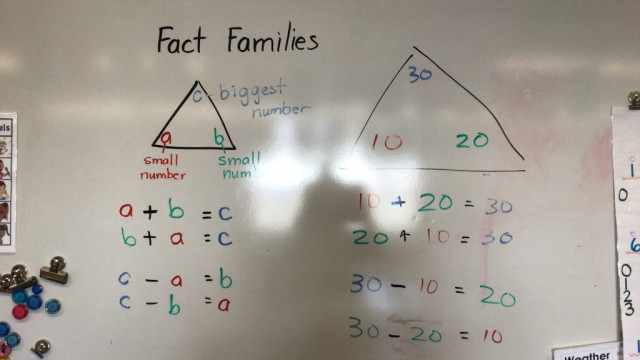 Fact Families
c - biggest
number
a b
small
number
small
num
a + b = c
b + a = c
c - a = b
c - b = a
30
10 20
10 + 20 = 30
20 + 10 = 30
30 - 10 = 20
30 - 20 = 10
1
0
6
0
1
2
3
Weather